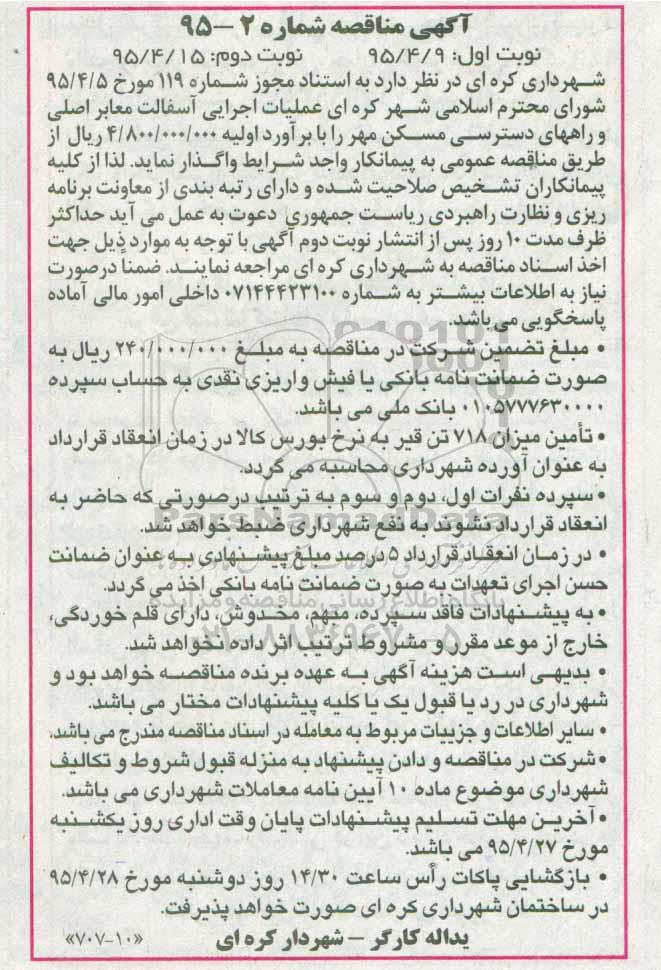 آگهی مناقصه شماره ۲ –۹۵
نوبت اول: ۹۵/۴/۹ نوبت دوم: ۹۵/۴/۱۵
شهرداری کره ای در نظر دارد به استناد مجوز شماره ۱۱۹ مورخ ۹۵/۴/۵
شورای محترم اسلامی شهر کره ای عملیات اجرایی آسفالت معابر اصلی
و راههای دسترسی مسکن مهر را با برآورد اولیه ۴/۸۰۰/۰۰۰/۰۰۰ ریال از
طریق مناقصه عمومی به پیمانکار واجد شرایط واگذار نماید. لذا از کلیه
پیمانکاران تشخیص صلاحیت شده و دارای رتبه بندی از معاونت برنامه
ریزی و نظارت راهبردی ریاست جمهوری دعوت به عمل می آید حداکثر
ظرف مدت ۱۰ روز پس از انتشار نوبت دوم آگهی با توجه به موارد ذیل جهت
اخذ اسناد مناقصه به شهرداری کره ای مراجعه نمایند. ضمنا درصورت
نیاز به اطلاعات بیشتر به شماره ۰۷۱۴۴۴۲۳۱۰۰ داخلی امور مالی آماده
پاسخگویی می باشد.
• مبلغ تضمین شرکت در مناقصه به مبلغ ۲۴۰/۰۰۰/۰۰۰ ریال به
صورت ضمانت نامه بانکی یا فیش واریزی نقدی به حساب سپرده
۰۱۰۵۷۷۷۶۳۰۰۰۰ بانک ملی می باشد.
• تأمین میزان ۷۱۸ تن قیر به نرخ بورس کالا در زمان انعقاد قرارداد
به عنوان آورده شهرداری محاسبه می گردد.
• سپرده نفرات اول، دوم و سوم به ترتیب درصورتی که حاضر به
انعقاد قرارداد نشوند به نفع شهرداری ضبط خواهد شد.
• در زمان انعقاد قرارداد ۵ درصد مبلغ پیشنهادی به عنوان ضمانت
حسن اجرای تعهدات به صورت ضمانت نامه بانکی اخذ می گردد.
• به پیشنهادات فاقد سپرده، مبهم، مخدوش، دارای قلم خوردگی،
خارج از موعد مقرر و مشروط ترتیب اثر داده نخواهد شد.
• بدیهی است هزینه آگهی به عهده برنده مناقصه خواهد بود و
شهرداری در رد یا قبول یک یا کلیه پیشنهادات مختار می باشد.
• سایر اطلاعات و جزییات مربوط به معامله در اسناد مناقصه مندرج می باشد.
• شرکت در مناقصه و دادن پیشنهاد به منزله قبول شروط و تکالیف
شهرداری موضوع ماده ۱۰ آیین نامه معاملات شهرداری می باشد.
• آخرین مهلت تسلیم پیشنهادات پایان وقت اداری روز یکشنبه
مورخ ۹۵/۴/۲۷ می باشد.
• بازگشایی پاکات رأس ساعت ۱۴/۳۰ روز دوشنبه مورخ ۹۵/۴/۲۸
در ساختمان شهرداری کره ای صورت خواهد پذیرفت.
یداله کارگر – شهردار کره ای «۷۰۷-۱۰»
ParsNamadData
پایگاه اطلاع رسانی مناقصه و مزایده
۰۲۱-۸۸۳۴۹۶۷۰-۵